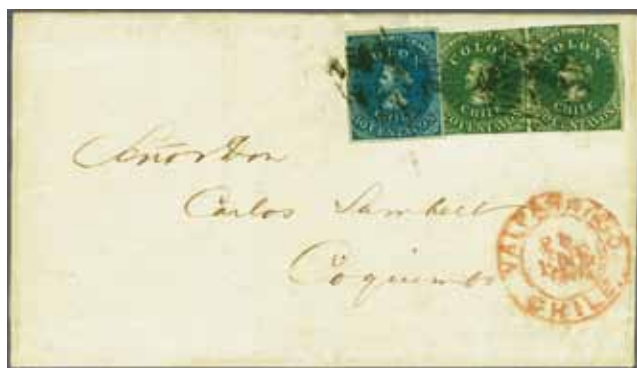 COLON COLON COLON
CHILE CHILE CHILE
Señor Don
Carlos Lambert
Coquimbo
VALPARAISO
CHILE